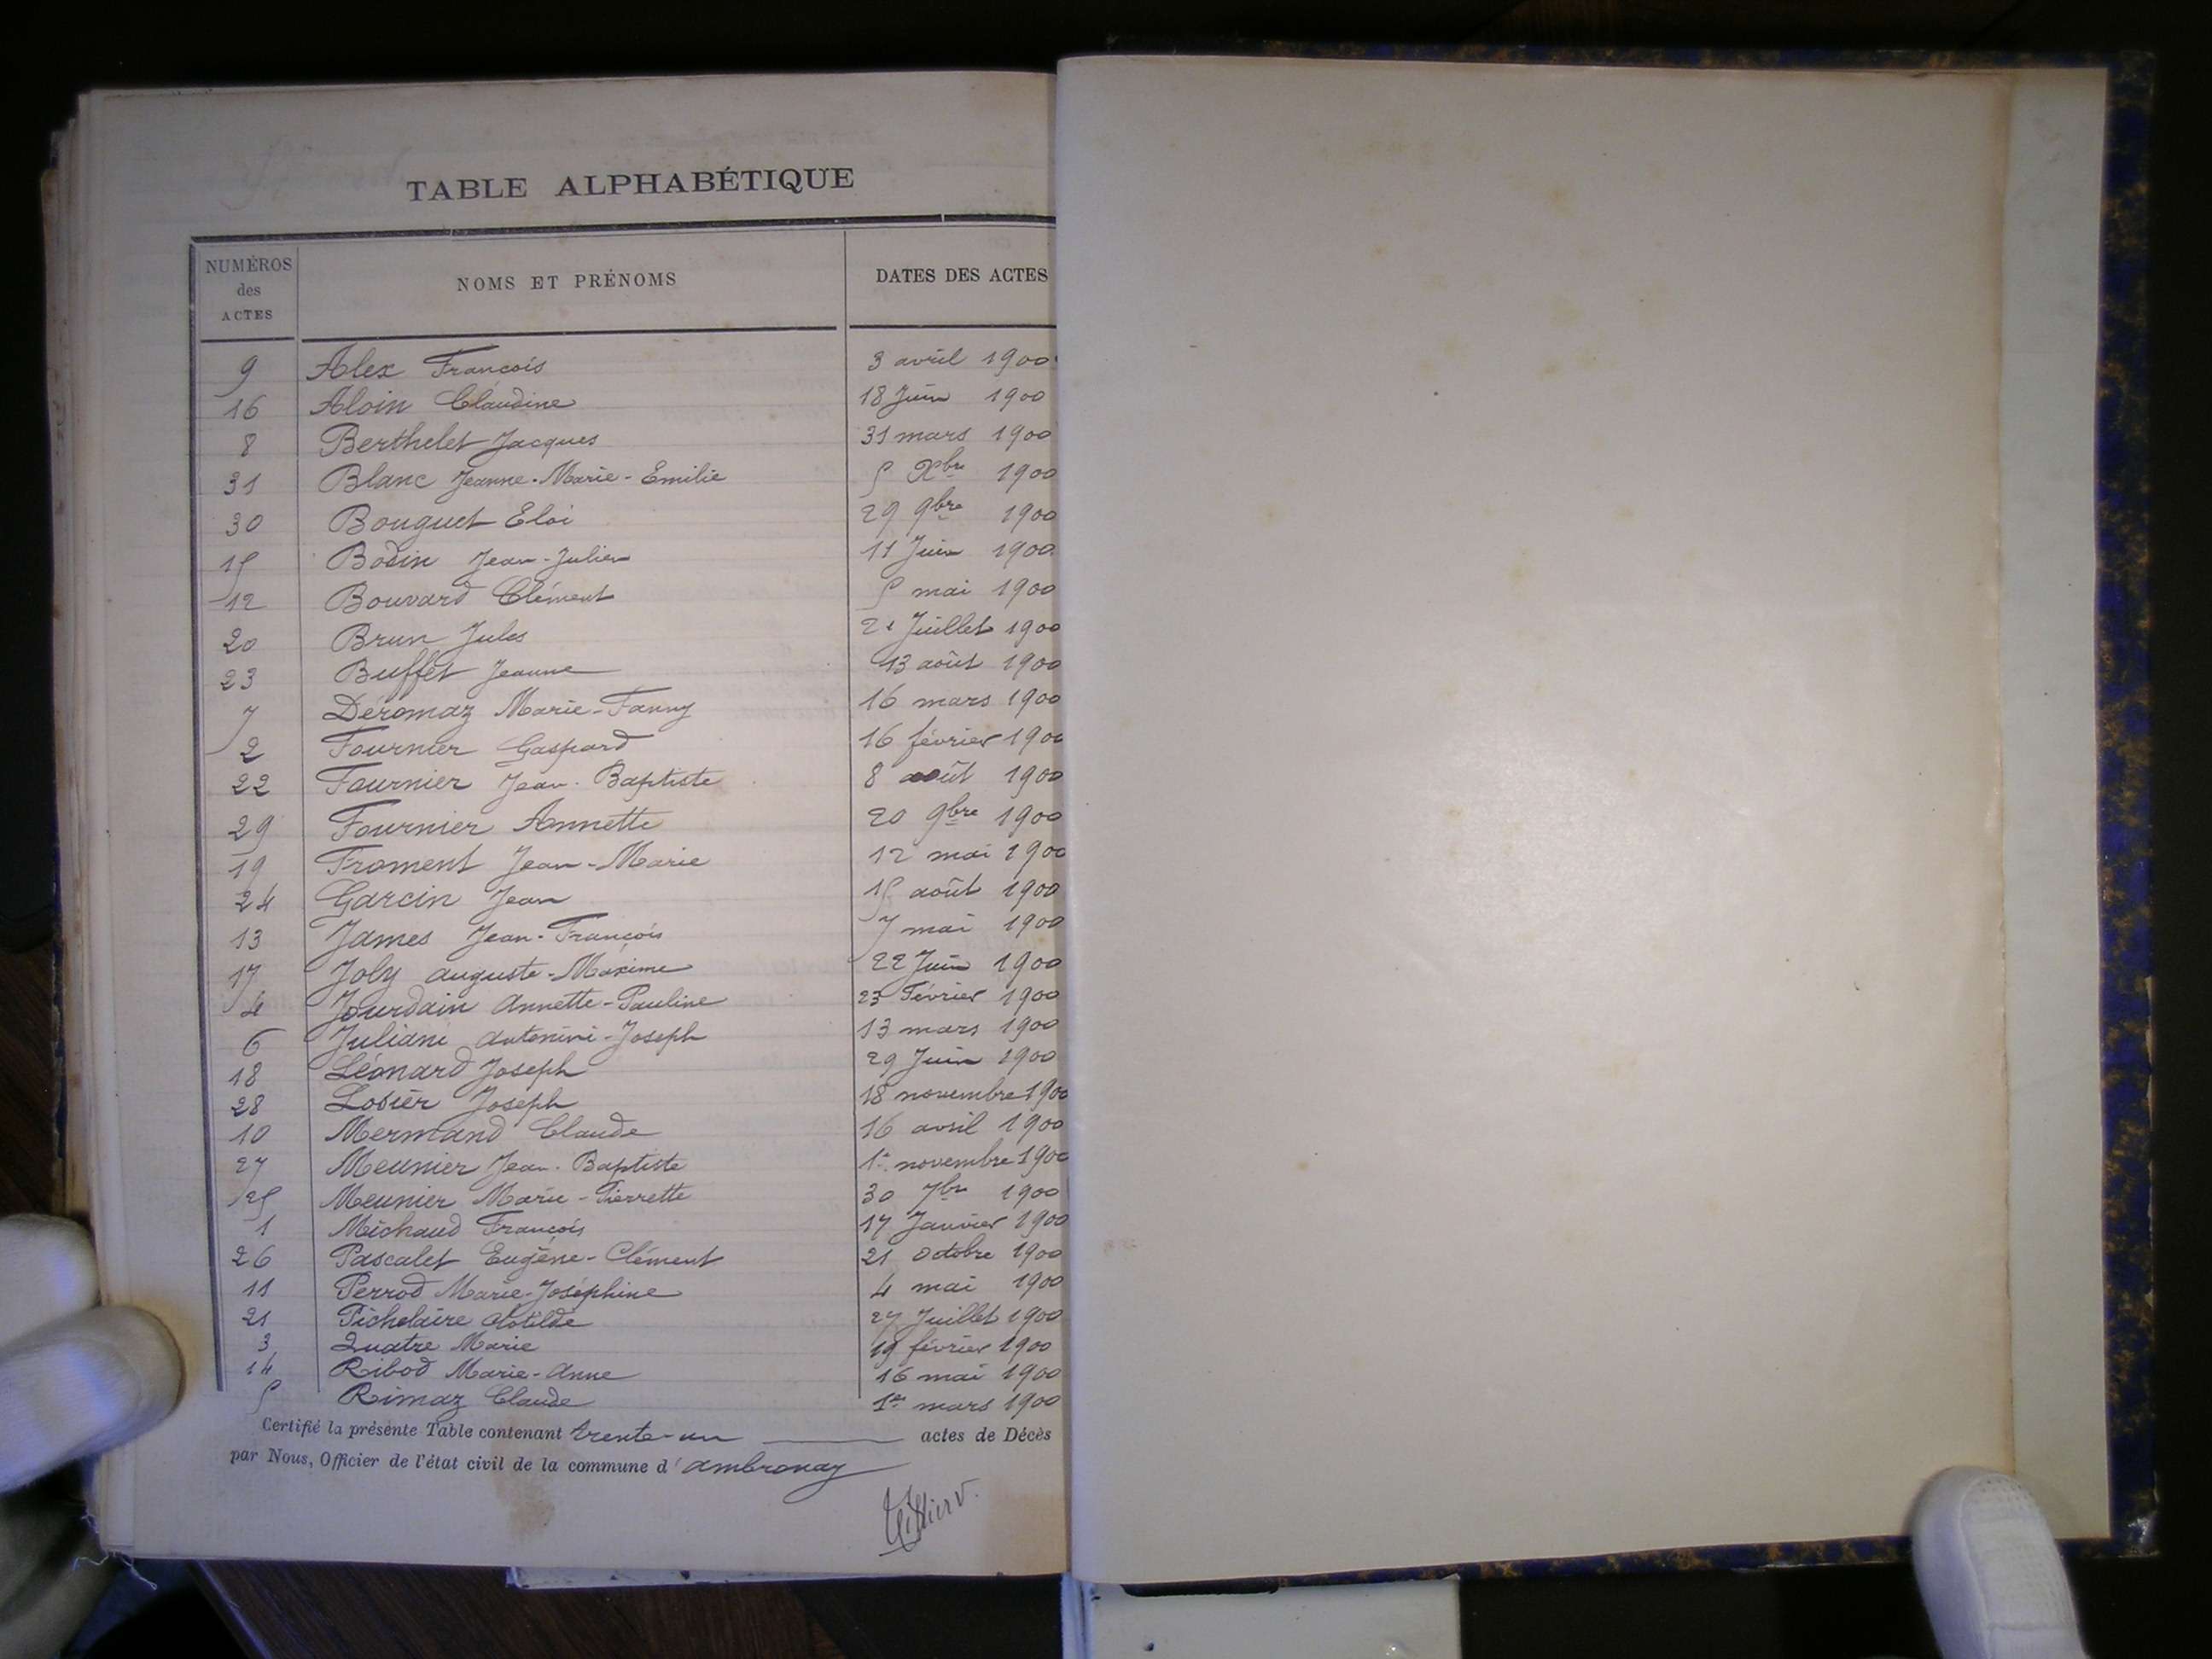 TABLE ALPHABÉTIQUE
NUMÉROS des ACTES NOMS ET PRÉNOMS DATES DES ACTES
9 Alex François 3 avril 1900
16 Aloin Claudine 18 Juin 1900
8 Berthelet Jacques 31 mars 1900
31 Blanc Jeanne-Marie-Emilie 5 Xbre 1900
30 Bouguet Eloi 29 9bre 1900
15 Bodin Jean-Julien 11 Juin 1900
12 Bouvard Clément 5 mai 1900
20 Brun Jules 21 Juillet 1900
23 Buffet Jeanne 13 août 1900
7 Déromaz Marie-Fanny 16 mars 1900
2 Fournier Gaspard 16 février 1900
22 Fournier Jean-Baptiste 8 août 1900
29 Fournier Annette 20 9bre 1900
19 Froment Jean-Marie 12 mai 1900
24 Garcin Jean 15 août 1900
13 James Jean-François 7 mai 1900
17 Joly auguste-Maxime 22 Juin 1900
4 Jourdain Annette-Pauline 23 Février 1900
6 Juliani Antonini-Joseph 13 mars 1900
18 Léonard Joseph 29 Juin 1900
28 Losier Joseph 18 novembre 1900
10 Mermand Claude 16 avril 1900
27 Meunier Jean-Baptiste 1er novembre 1900
25 Meunier Marie-Pierrette 30 7bre 1900
1 Michaud François 17 Janvier 1900
26 Pascalet Eugène-Clément 21 octobre 1900
11 Perrod Marie-Joséphine 4 mai 1900
21 Pichelaire Clotilde 27 Juillet 1900
3 Quatre Marie 19 février 1900
14 Ribod Marie-Anne 16 mai 1900
5 Rimaz Claude 1er mars 1900
Certifié la présente Table contenant trente-un actes de Décès
par Nous, Officier de l'état civil de la commune d'ambronay